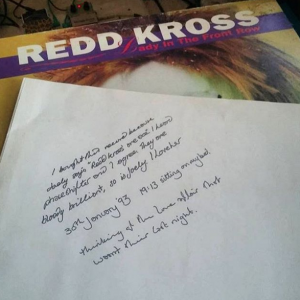 REDD KROSS
Lady In The Front Row
I bought this record because
daddy says "Redd Kross are cool. I heard
and I agree. They are
bloody brilliant, so is
30th January '93 19:13 sitting on my bed.
thinking of the love affair that
wasn't their last night.